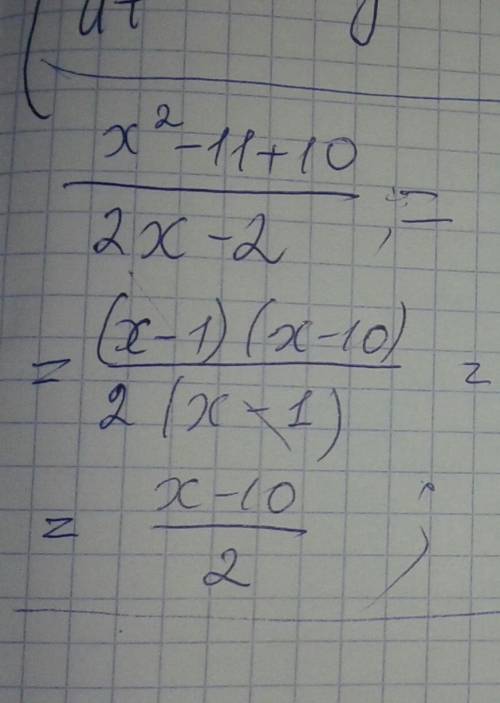 x² - 11 + 10
2x - 2 ; =
= (x - 1) (x - 10)
2 (x - 1) =
= x - 10
2 ;